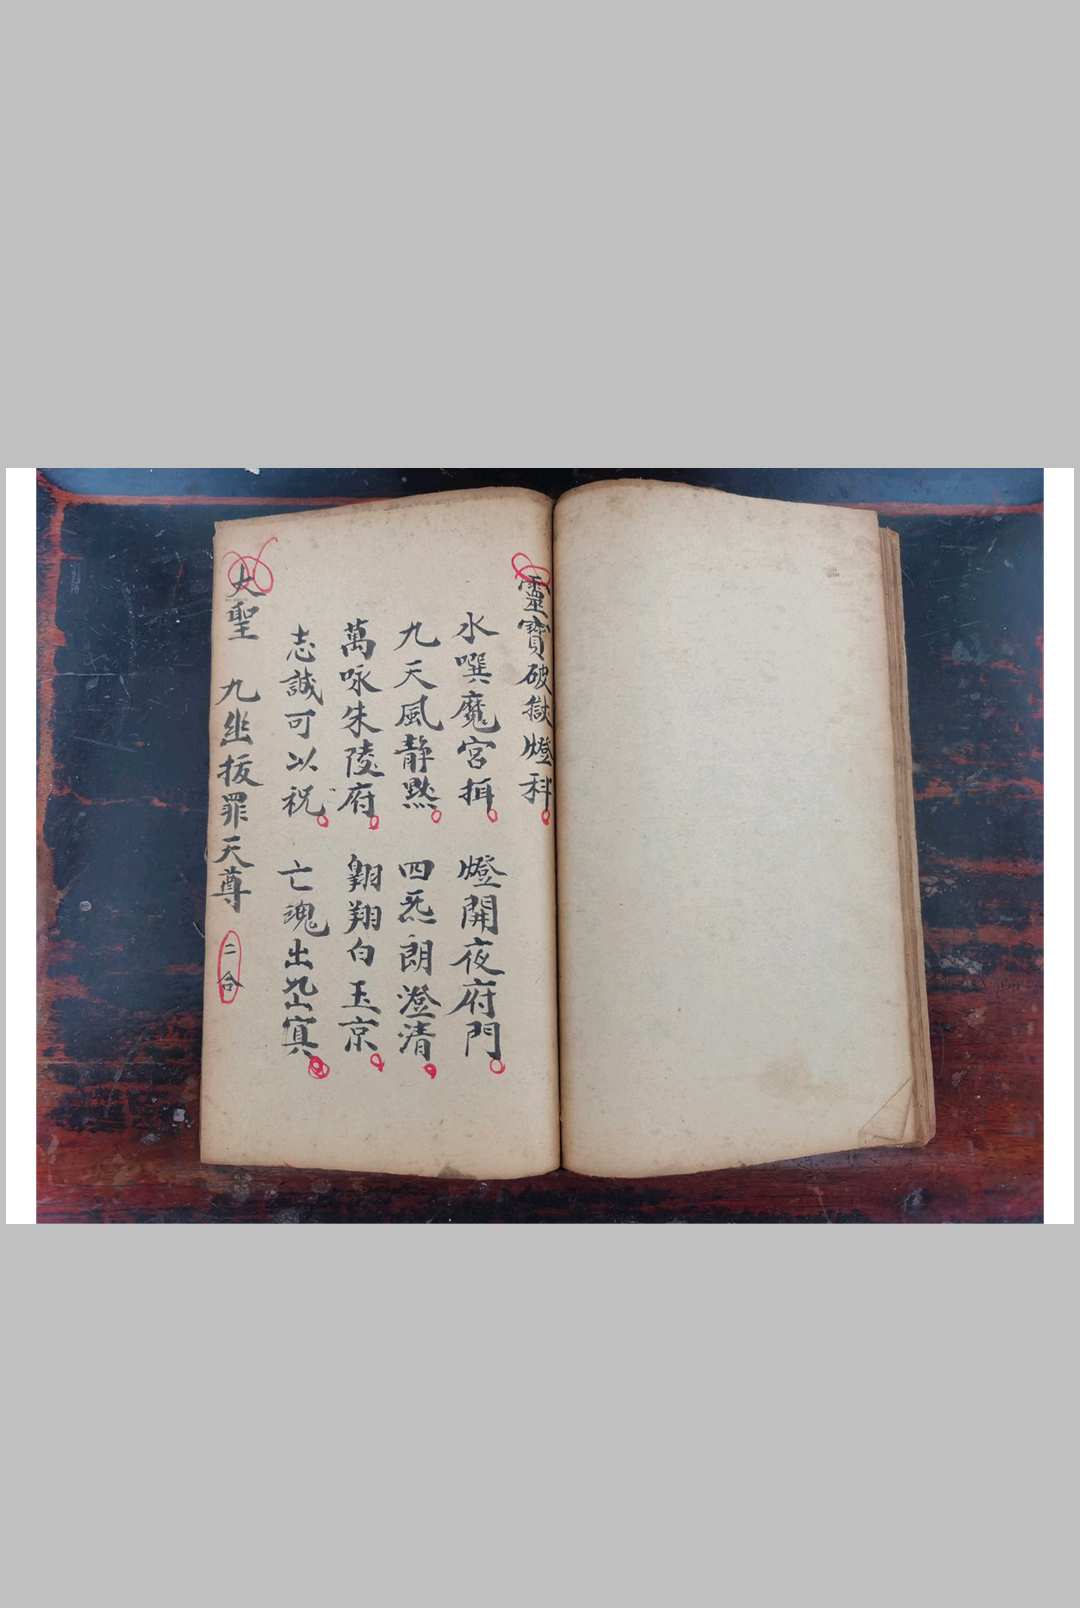 靈寶破獄燈科
水噀魔宮摂 燈開夜府門
九天風靜默 四炁朗澄清
萬咏朱陵府 翱翔白玉京
志誠可以祝 亡魂出寘
大聖 九幽拔罪天尊 二合